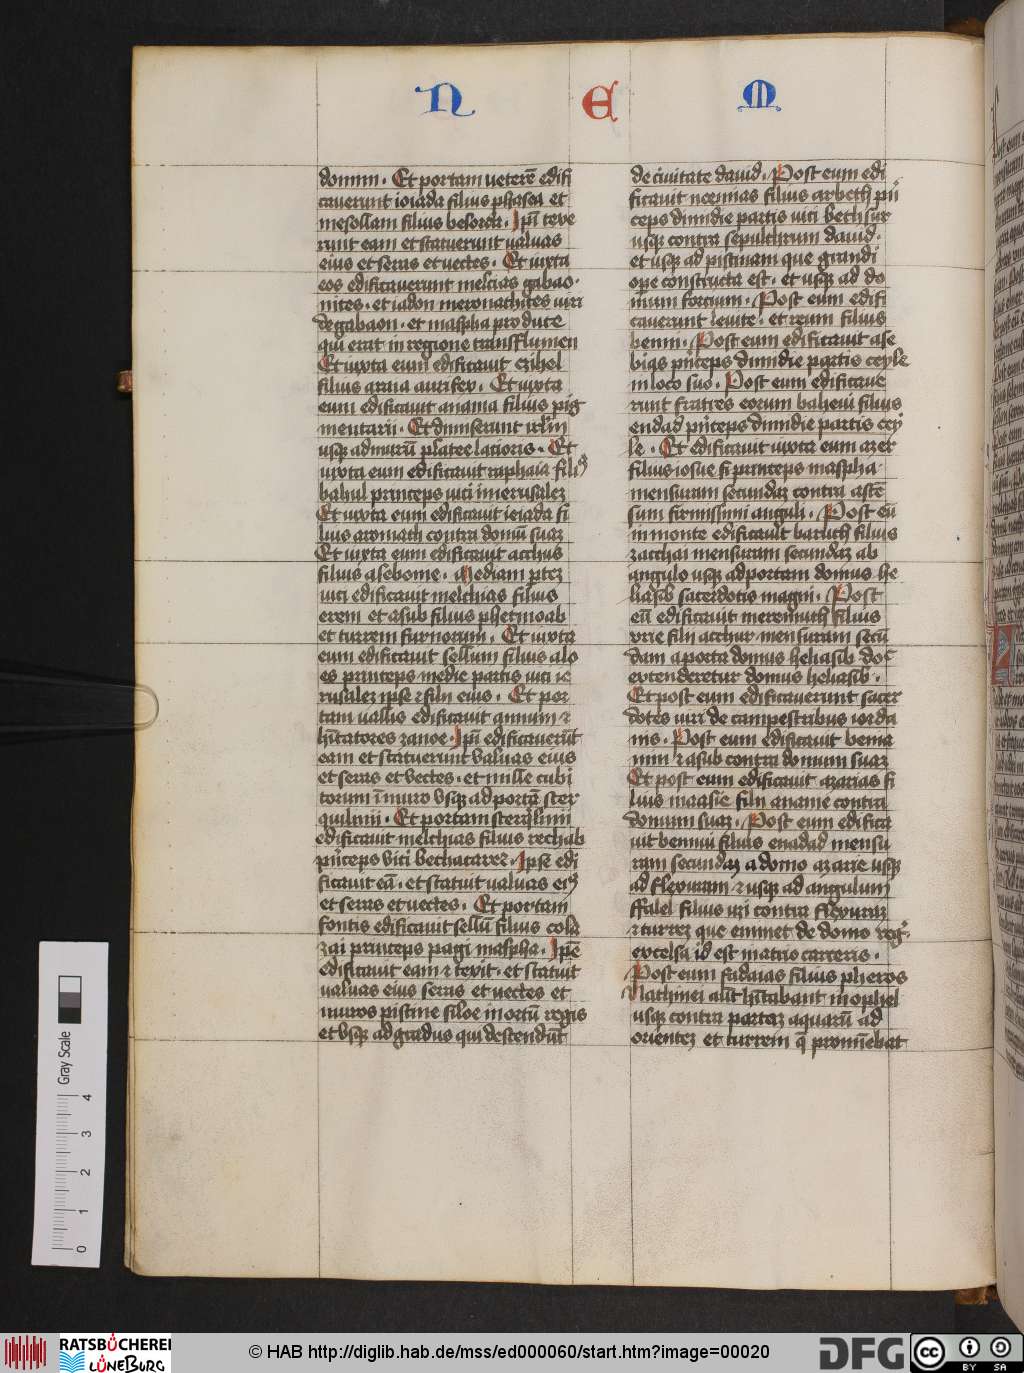 N E M
domini · Et portam veterē edifi
caverunt ioiada filius phasea et
mesollam filius besorda · Ipī texe
runt eam et statuerunt valvas
eius et seras et vectes · Et iuxta
eos edificaverunt melcias gabao
nites · et iadon meronathites viri
de gabaon · et maspha pro duce
qui erat in regione transflumen
Et iuxta eum edificavit ezihel
filius araia aurifex · Et iuxta
eum edificavit anania filius pig
mentarii · Et dimiserunt irl̄m
usq̄ ad murū platee latioris · Et
iuxta eum edificavit raphaia filiꝰ
bahul princeps vici in ierusalez
Et iuxta eum edificavit ieiada fi
lius aromath contra domū suaz
Et iuxta eum edificavit acchus
filius asebonie · Mediam ptez
vici edificavit melchias filius
erem et asub filius phetmoab
et turrem furnorum · Et iuxta
eum edificavit sellum filius alo
es princeps medie partis vici ie
rusalez ipse ⁊ filii eius · Et por
tam vallis edificavit annum ⁊
hītatores zanoe · Ipī edificaverūt
eam et statuerunt valvas eius
et seras et vectes · et mille cubi
torum ī muro usq̄ ad portā ster
quilinii · Et portam sterq̄linii
edificavit melchias filius rechab
pīceps vici bethacarez · Ipse edi
ficavit eā · et statuit valvas eiꝰ
et seras et vectes · Et portam
fontis edificavit sellū filius cola
zai princeps pagi maspha · Ipē
edificavit eam ⁊ texit · et statuit
valvas eius seras et vectes et
muros pistine siloe in ortū regis
et usq̄ ad gradus qui descendūt
de civitate david · Post eum edi
ficavit neemias filius azbeth pri
ceps dimidie partis vici bethsur
usq̄ contra sepulchrum david
et usq̄ ad piscinam que grandi
ope constructa est · et usq̄ ad do
mum fortium · Post eum edifi
caverunt levite · et reum filius
benni · Post eum edificavit ase
bias pīceps dimidie partis ceyle
in loco suo · Post eum edificave
runt fratres eorum bahevi filius
endad pīceps dimidie partis cey
le · Et edificavit iuxta eum azer
filius iosue fi princeps maspha
mensuram secundaz contra ascē
sum firmissimi anguli · Post eū
in monte edificavit baruch filius
zacchai mensuram secundaz ab
angulo usq̄ ad portam domus he
liasib sacerdotis magni · Post
eū edificavit meremuth filius
urie filii acchur mensuram secū
dam a porta domus heliasib doc̄
extenderetur domus heliasib ·
Et post eum edificaverunt sacer
dotes viri de campestribus iorda
nis · Post eum edificavit benia
min ⁊ asub contra domum suaz
Et post eum edificavit azarias fi
lius maasie filii ananie contra
domum suaz · Post eum edifica
vit bennui filius enadad mensu
ram secundaz a domo azarie usq̄
ad flexuram ⁊ usq̄ ad angulum
ffalel filius uzi contra flexuraz
⁊ turrez que eminet de domo regꝭ
excelsa id est in atrio carceris ·
Post eum fadaias filius pheros
Nathinei aūt hītabant in ophel
usq̄ contra portaz aquarū ad
orientez et turrem q̄ prominebat
Gray Scale
4
3
2
1
0
RATSBÜCHEREI
LÜNEBURG
© HAB http://diglib.hab.de/mss/ed000060/start.htm?image=00020
DFG
cc
BY SA